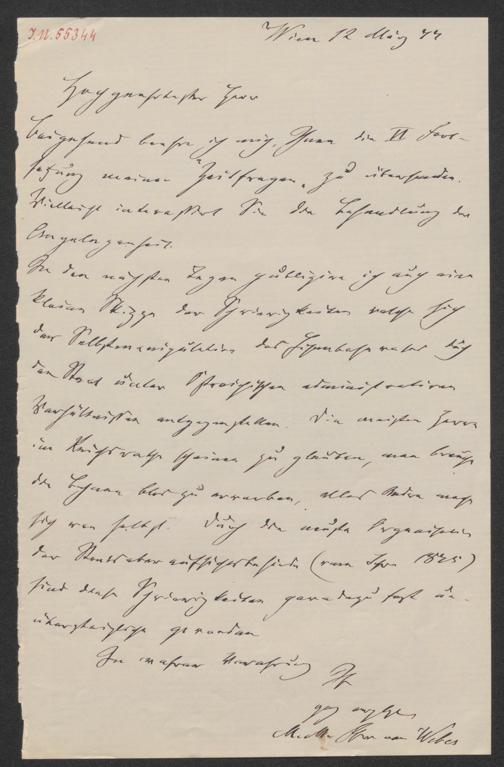 I.N. 55344
Wien 12 März 77
Hochgeehrtester Herr
Beigehend beehre ich mich, Ihnen die VI Fort-
setzung meiner "Zeitfragen" zu übersenden.
Vielleicht interessirt Sie die Behandlung der
Angelegenheit.
In den nächsten Tagen publizire ich auch eine
kleine Skizze der Schwierigkeiten welche sich
der Selbstmanipulation des Eisenbahn durch
den Staat unter administrativen
Verhältnissen entgegenstellen. Die meisten Herren
im Reichsrathe scheinen zu glauben, man brauche
die Bahnen blos zu erwerben, alles Andre mache
sich von selbst. Durch die neuste Organisation
der Staatsoberaufsichtsbehörde (vom Jahre 1875)
sind diese Schwierigkeiten geradezu fast un-
übersteigliche geworden
In wahrer Verehrung
Ihr
ganz
M M von Weber